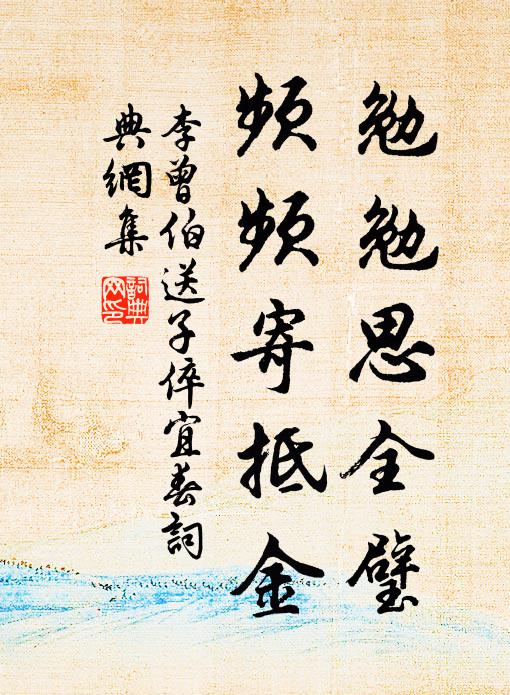 勉勉思全璧
頻頻寄抵金
李曾伯送子倅宜春詞
典網集
詞典網印